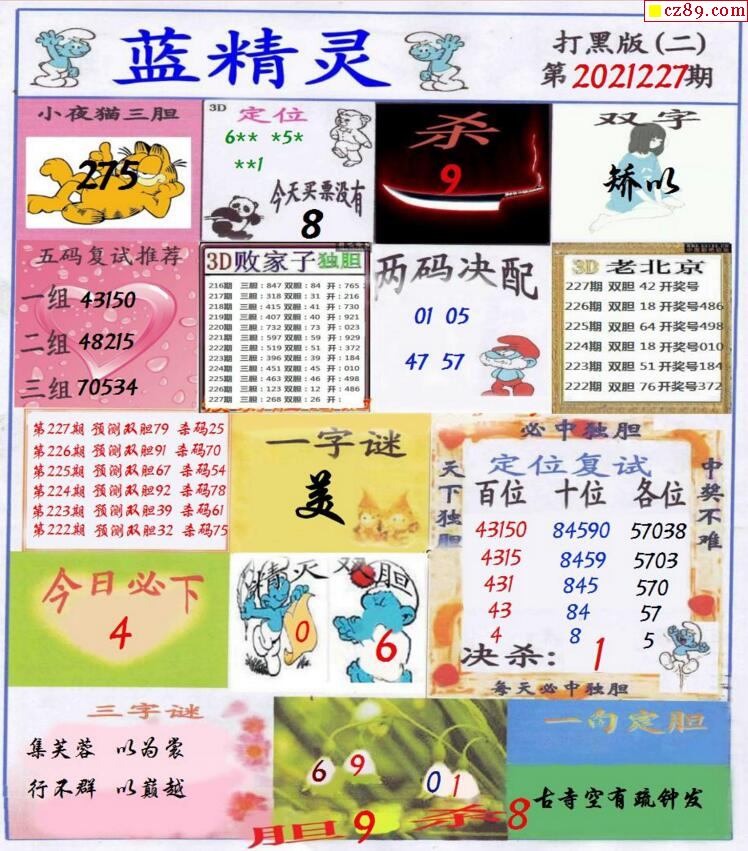 cz89.com
蓝精灵
打黑版(二)
第2021227期
小夜猫三胆
275
3D 定位
6** *5*
**1
今天买票没有
8
杀
9
双字
矫以
五码复试推荐
一组 43150
二组 48215
三组 70534
3D败家子独胆
216期 三胆:847 双胆:84 开:765
217期 三胆:318 双胆:31 开:216
218期 三胆:415 双胆:41 开:730
219期 三胆:407 双胆:40 开:921
220期 三胆:732 双胆:73 开:023
221期 三胆:597 双胆:59 开:929
222期 三胆:519 双胆:51 开:372
223期 三胆:396 双胆:39 开:184
224期 三胆:451 双胆:45 开:010
225期 三胆:463 双胆:46 开:498
226期 三胆:123 双胆:12 开:486
227期 三胆:268 双胆:26 开:
两码决配
01 05
47 57
3D 老北京
227期 双胆 42 开奖号
226期 双胆 18 开奖号486
225期 双胆 64 开奖号498
224期 双胆 18 开奖号010
223期 双胆 51 开奖号184
222期 双胆 76 开奖号372
第227期 预测双胆79 杀码25
第226期 预测双胆91 杀码70
第225期 预测双胆67 杀码54
第224期 预测双胆92 杀码78
第223期 预测双胆39 杀码61
第222期 预测双胆32 杀码75
一字谜
美
必中独胆
天下独胆
中奖不难
定位复试
百位 十位 各位
43150 84590 57038
4315 8459 5703
431 845 570
43 84 57
4 8 5
决杀: 1
每天必中独胆
今日必下
4
精灵 双胆
0 6
三字谜
集芙蓉 以为裳
行不群 以巅越
6 9
0 1
胆 9 杀 8
一句定胆
古寺空有疏钟发